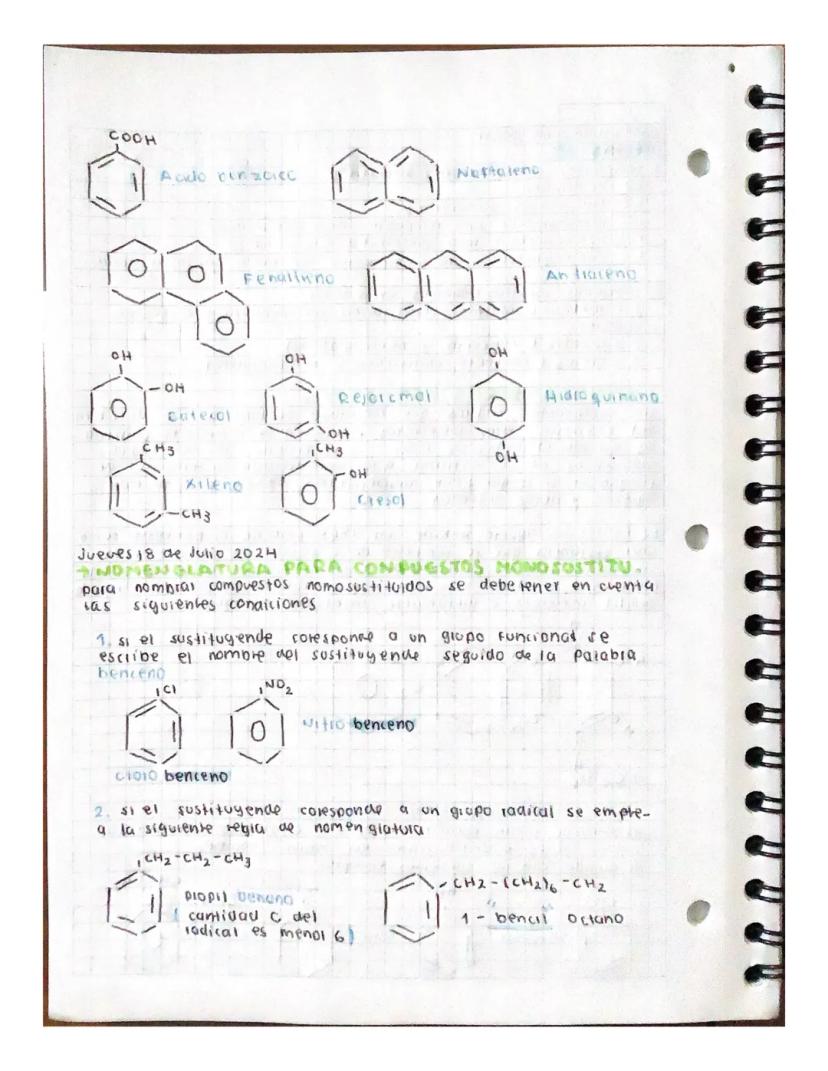 COOH
Acido benzoico
Naftaleno
Fenantreno
Antraceno
OH
OH
Catecol
OH
OH
Resorcinol
OH
OH
Hidroquinona
CH3
CH3
Xileno
CH3
OH
Cresol
Jueves 18 de Julio 2024
→ NOMENGLATURA PARA CONPUESTOS MONOSOSTITU.
para nombrar compuestos nomosustituidos se debe tener en cuenta
las siguientes condiciones
1. si el sustituyende coresponde a un grupo funcional se
escribe el nombre del sustituyende seguido de la palabra
benceno
Cl
NO2
Nitro benceno
cloro benceno
2. si el sustituyende coresponde a un grupo radical se emple-
a la siguiente regla de nomenglatura
CH2-CH2-CH3
propil benceno
( cantidad C del
radical es menor 6)
CH2-(CH2)6-CH2
1-"bencil" octano